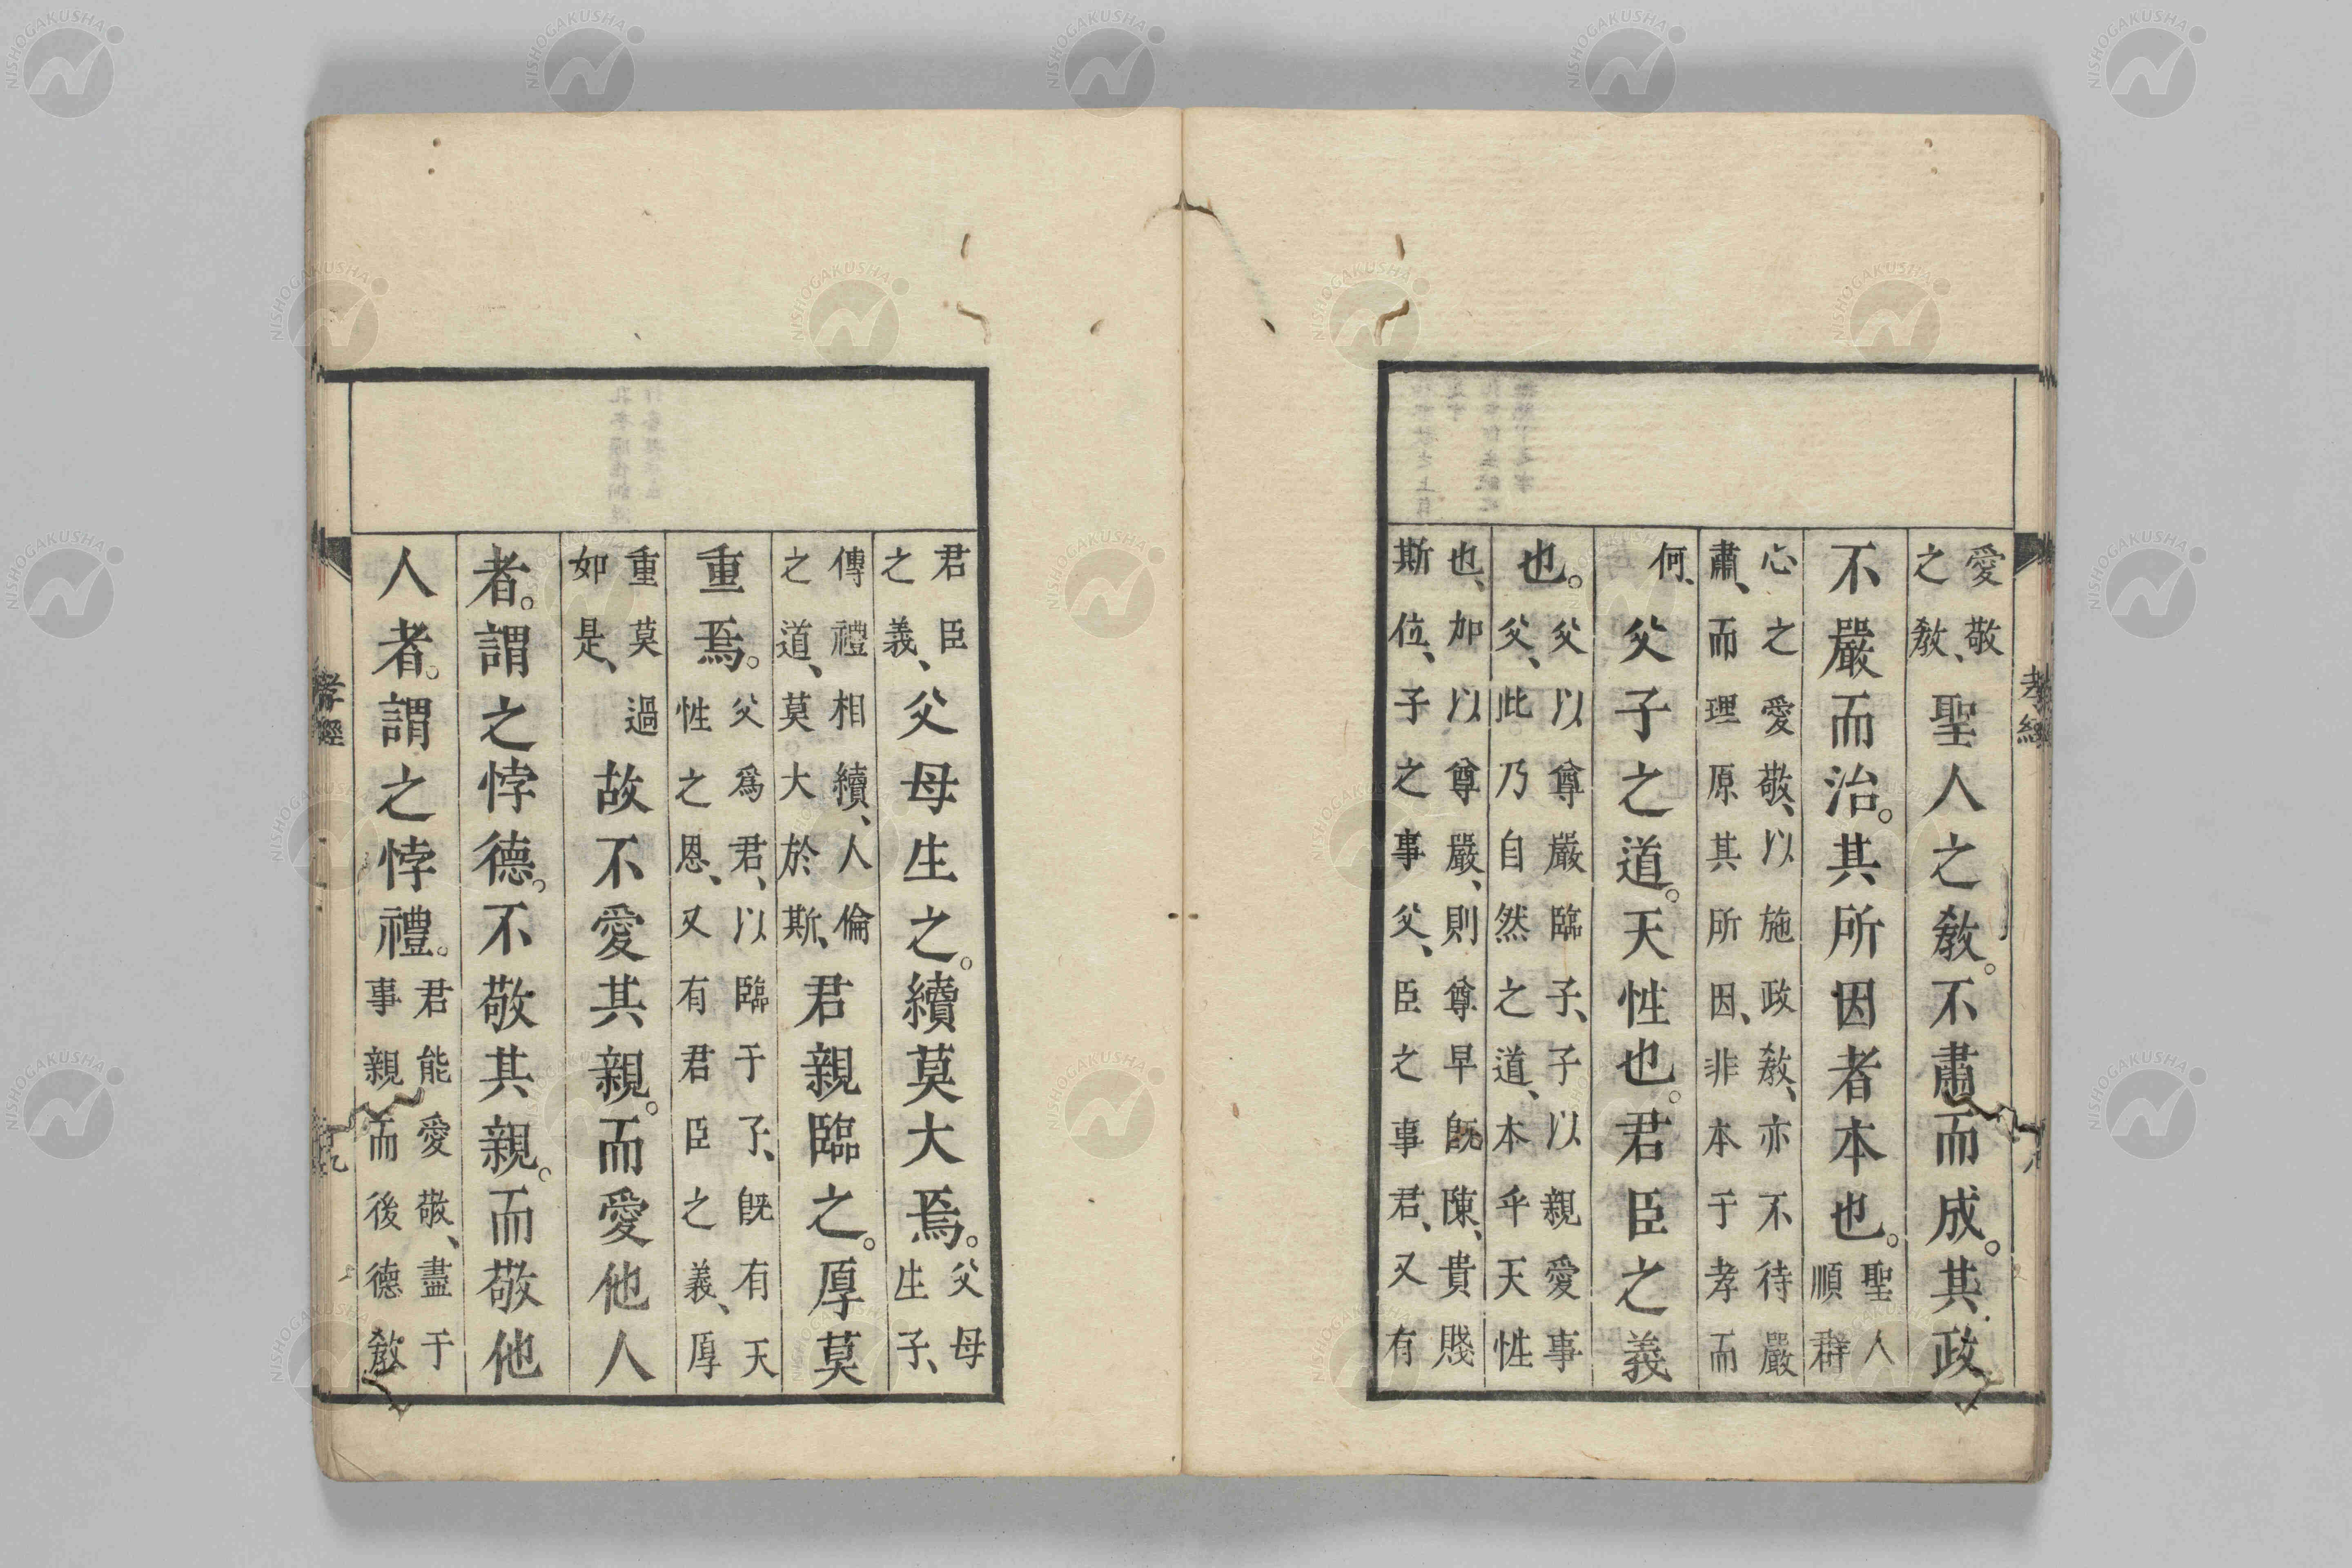 愛敬
之敎、聖人之敎。不肅而成。其政
不嚴而治。其所因者本也。聖人
順群
心之愛敬、以施政敎、亦不待嚴
肅、而理原其所因、非本于孝而
何、父子之道。天性也。君臣之義
也。父以尊嚴臨子、子以親愛事
父、此乃自然之道、本乎天性
也、加以尊嚴、則尊早既陳、貴賤
斯位、子之事父、臣之事君、又有
君臣
之義、父母生之。續莫大焉。父母
生子、
傳禮相續、人倫
之道、莫大於斯、君親臨之。厚莫
重焉。父爲君、以臨于子、既有天
性之恩、又有君臣之義、厚
重莫過
如是、故不愛其親。而愛他人
者。謂之悖德。不敬其親。而敬他
人者。謂之悖禮。君能愛敬、盡于
事親而後德敎
孝經
九
NISHOGAKUSHA